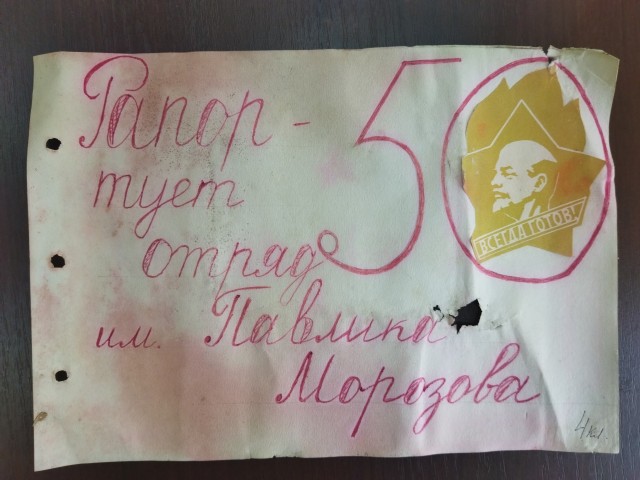 Рапор-
тует
отряд
им. Павлика
Морозова
50
ВСЕГДА ГОТОВ!
4 кл.